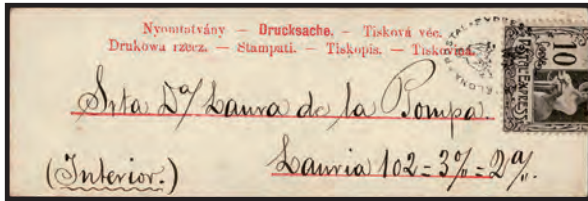 Nyomtatvány — Drucksache. — Tisková věc.
Drukowa rzecz. — Stampati. — Tiskopis. — Tiskovina.
10
POSTAL-EXPRESS
Srta Dª/ Laura de la Pompa.
Lauria 102=3º/=2ª/.
(Interior.)